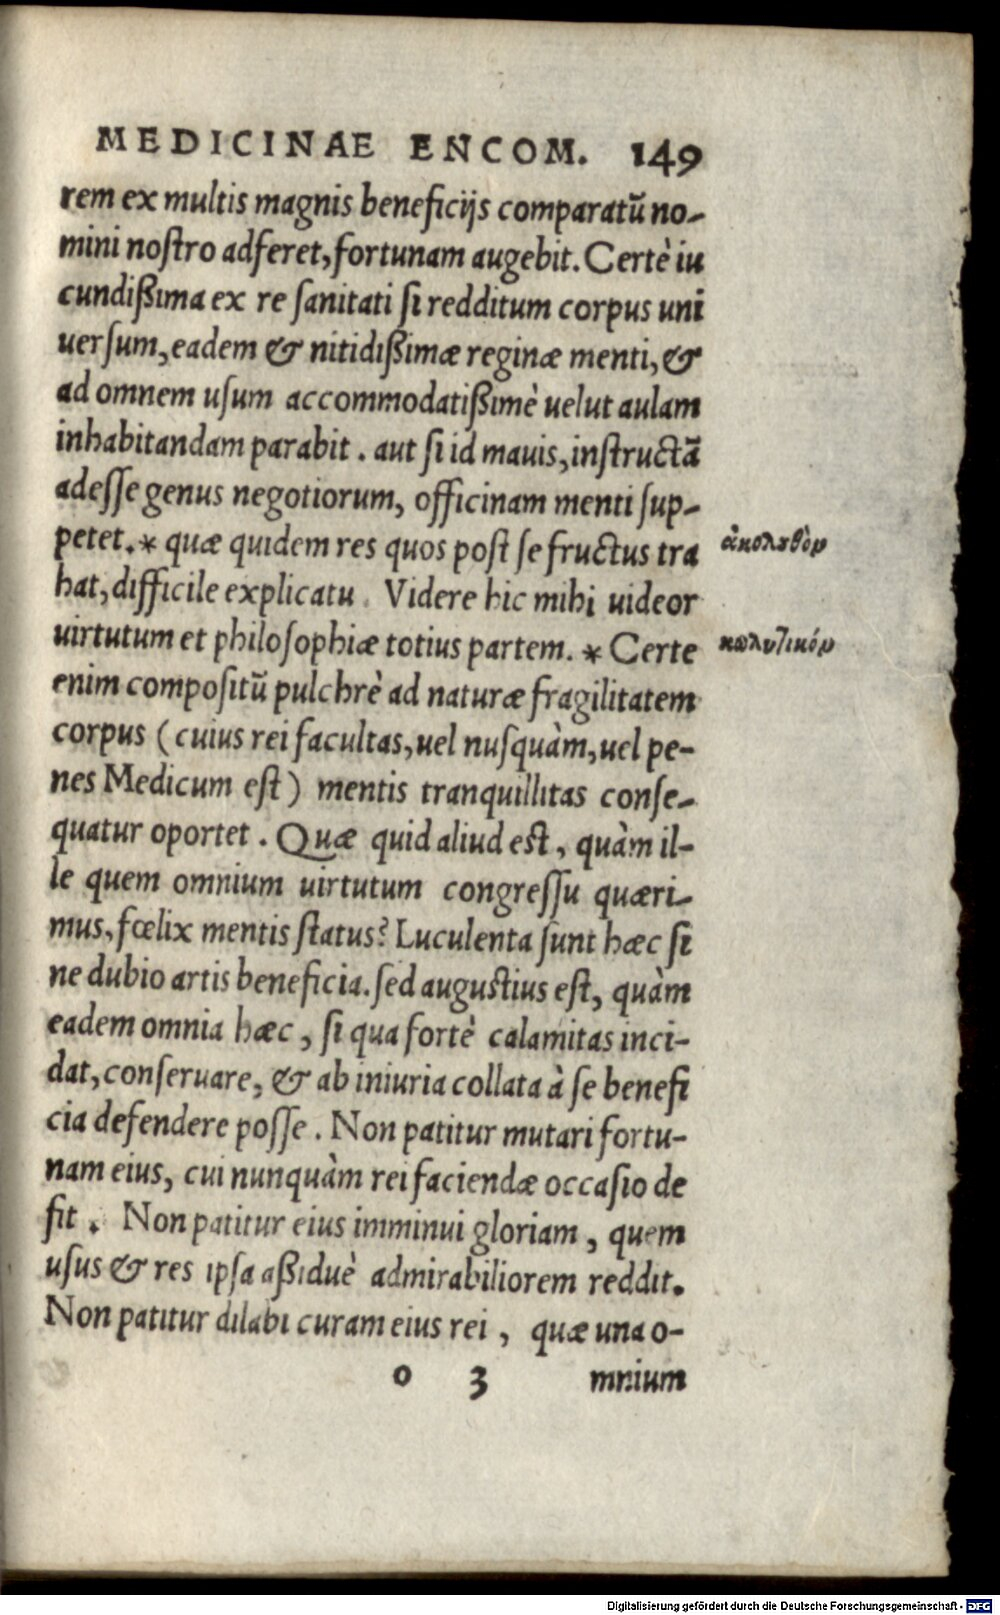 MEDICINAE ENCOM. 149
rem ex multis magnis beneficijs comparatũ no-
mini nostro adferet, fortunam augebit. Certè iu
cundißima ex re sanitati si redditum corpus uni
uersum, eadem & nitidißimæ reginæ menti, &
ad omnem usum accommodatißimè uelut aulam
inhabitandam parabit. aut si id mauis, instructã
adesse genus negotiorum, officinam menti sup-
petet. * quæ quidem res quos post se fructus tra
hat, difficile explicatu. Videre hic mihi uideor
uirtutum et philosophiæ totius partem. * Certe
enim compositũ pulchrè ad naturæ fragilitatem
corpus (cuius rei facultas, uel nusquàm, uel pe-
nes Medicum est) mentis tranquillitas conse-
quatur oportet. Quæ quid aliud est, quàm il-
le quem omnium uirtutum congressu quæri-
mus, fœlix mentis status? Luculenta sunt hæc si
ne dubio artis beneficia. sed augustius est, quàm
eadem omnia hæc, si qua fortè calamitas inci-
dat, conseruare, & ab iniuria collata à se benefi
cia defendere posse. Non patitur mutari fortu-
nam eius, cui nunquàm rei faciendæ occasio de
sit. Non patitur eius imminui gloriam, quem
usus & res ipsa aßiduè admirabiliorem reddit.
Non patitur dilabi curam eius rei, quæ una o-
o 3 mnium
ἀκολουθὸν
κωλυτικόν
Digitalisierung gefördert durch die Deutsche Forschungsgemeinschaft - DFG